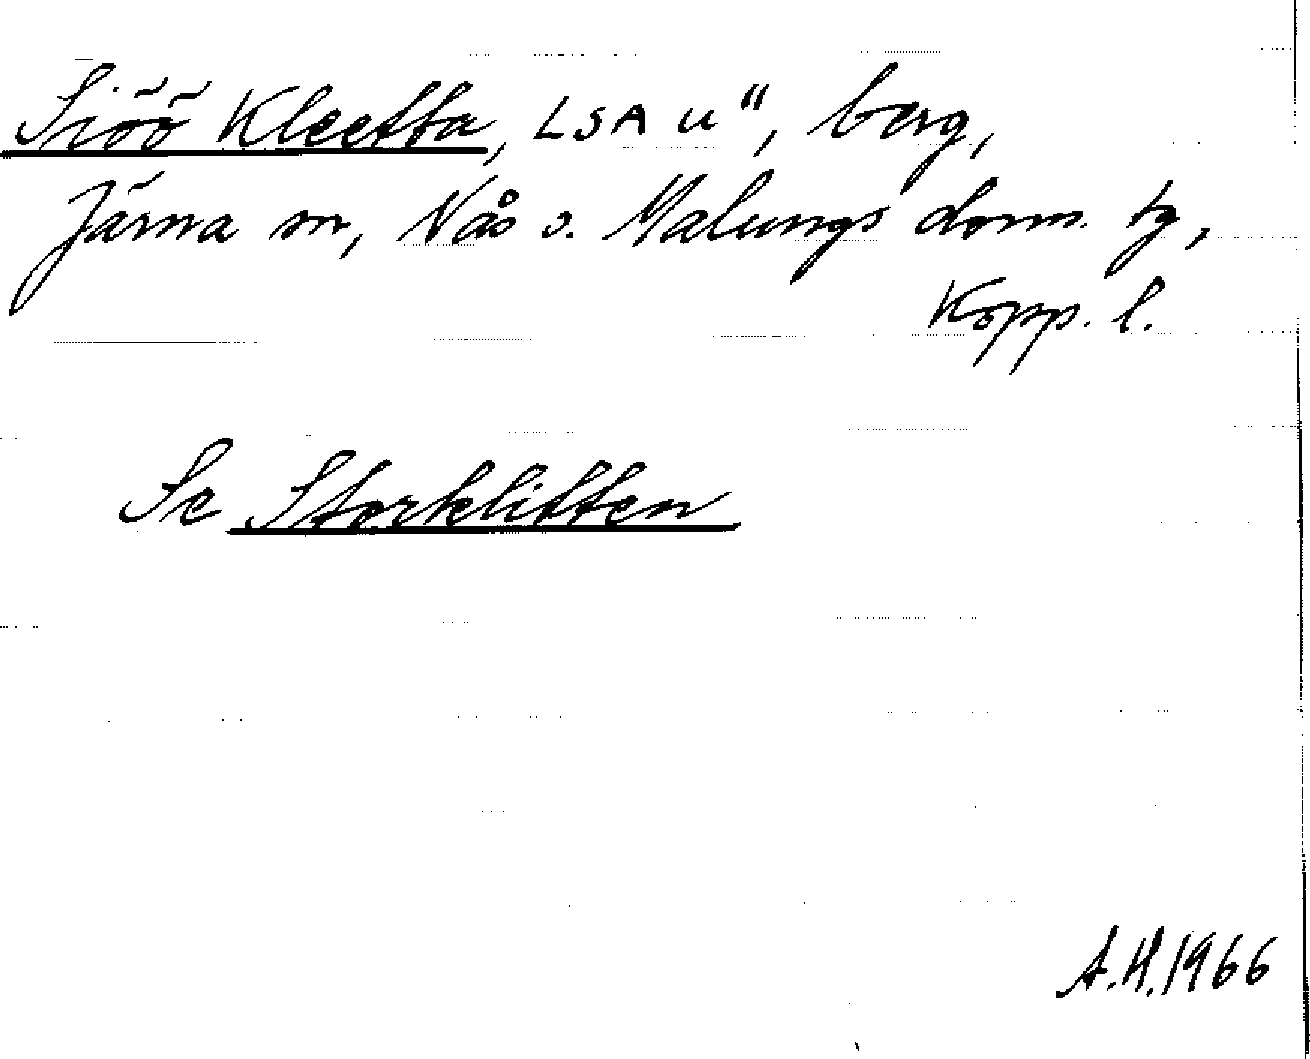 Siöö Kleetta, LSA u", berg,
Järna sn, Nås o. Malungs doms. tg,
Kopp. l.
Se Storklitten
A.H. 1966